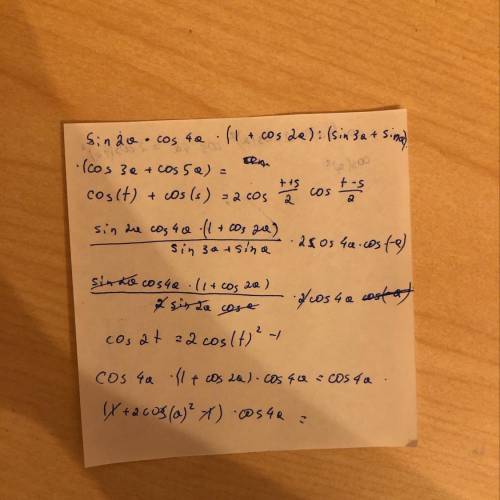 sin2a • cos 4a · (1 + cos 2a) : (sin 3a + sin a)
·(cos 3a + cos 5a) =
cos(t) + cos(s) = 2 cos (t+s)/2 cos (t-s)/2
sin 2a cos 4a · (1 + cos 2a) / sin 3a + sin a · 2 cos 4a · cos(-a)
sin 2a cos 4a · (1 + cos 2a) / 2 sin 2a cos a · 2 cos 4a cos(-a)
cos 2t = 2 cos(t)² - 1
cos 4a · (1 + cos 2a) · cos 4a = cos 4a ·
(1 + 2cos(a)² - 1) · cos 4a =